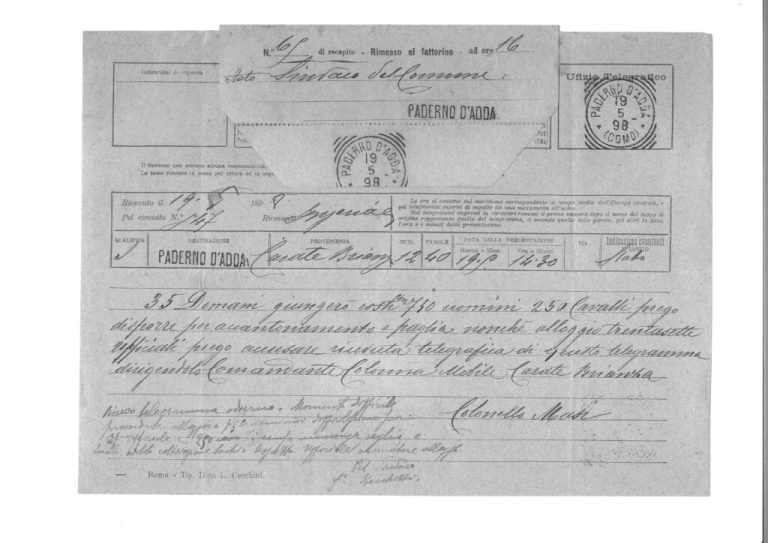 N.° 65 di recapito - Rimesso al fattorino - ad ore 16
Stato Sindaco del Comune
PADERNO D'ADDA
Indicazioni di urgenza
Ufizio Telegrafico
PADERNO D'ADDA
19
5
98
(COMO)
PADERNO D'ADDA
19
5
98
Il Governo non assume alcuna responsabilità
Le tasse riscosse in meno per errore od in seguito
Ricevuto il 19 5 1898
Pel circuito N.° 747
Ricevente
Le ore si contano sul meridiano corrispondente al tempo medio dell'Europa centrale, e
pei telegrammi interni di seguito da una mezzanotte all'altra.
Nei telegrammi impressi in caratteri romani il primo numero dopo il nome del luogo di
origine rappresenta quello del telegramma, il secondo quello delle parole, gli altri la data,
l'ora e i minuti della presentazione.
QUALIFICA
DESTINAZIONE
PROVENIENZA
NUM.
PAROLE
DATA DELLA PRESENTAZIONE
Giorno e Mese
Ore e Minuti
VIA
Indicazioni eventuali
PADERNO D'ADDA
Carate Brianz
12
40
19.5
14:30
Stato
35 Domani giungerò costì con 750 uomini 250 Cavalli prego
disporre per accantonamento e paglia nonchè alloggio trentasette
ufficiali prego accusare ricevuta telegrafica di questo telegramma
dirigendolo Comandante Colonna Mobile Carate Brianza
Colonello Masi
Ricevo telegramma odierno
provvedere alloggio 750 uomini
37 ufficiali 250
Roma - Tip. Ditta L. Cecchini.